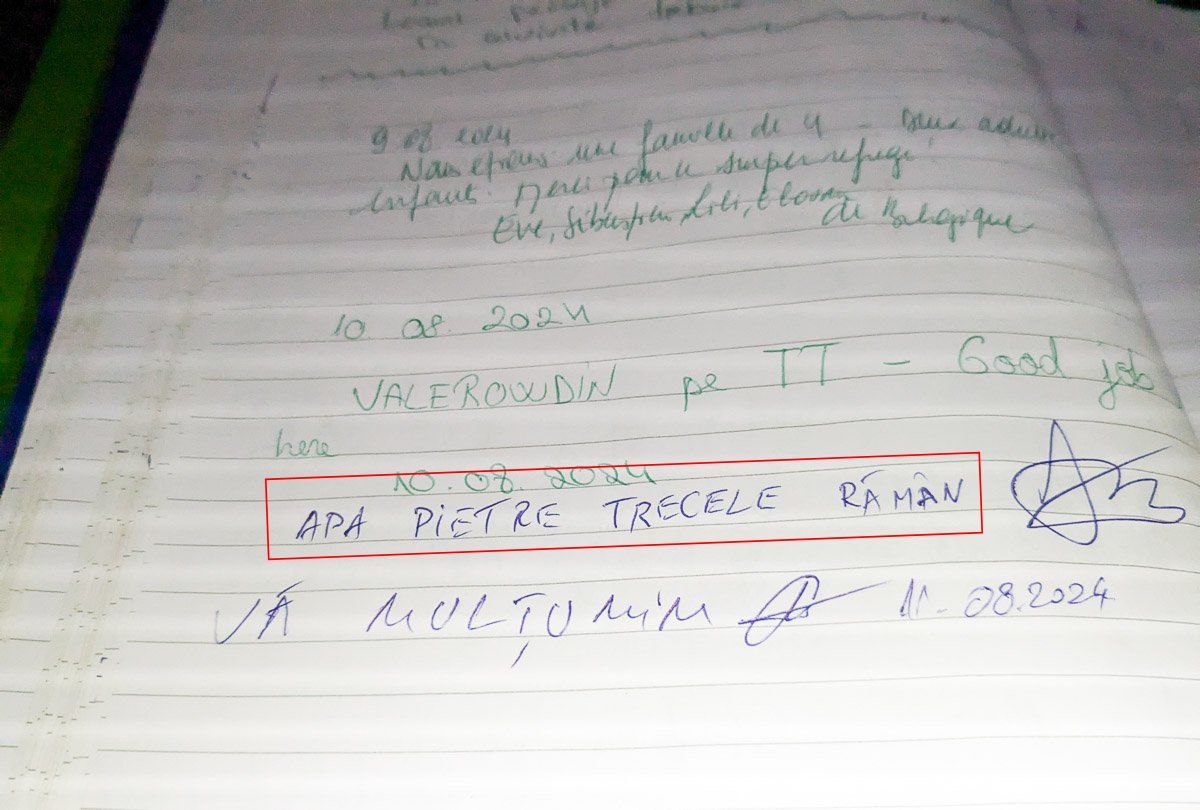 9 08 2024
une famille de 4 - deux
enfants. Merci pour ce super refuge
Eve, Sébastien, Lili, de Belgique
10 08. 2024
VALEROWDIN pe TT - Good job
here
10.08.2024
APA PIETRE TRECELE RĂMÂN
VĂ MULȚUMIM 11.08.2024